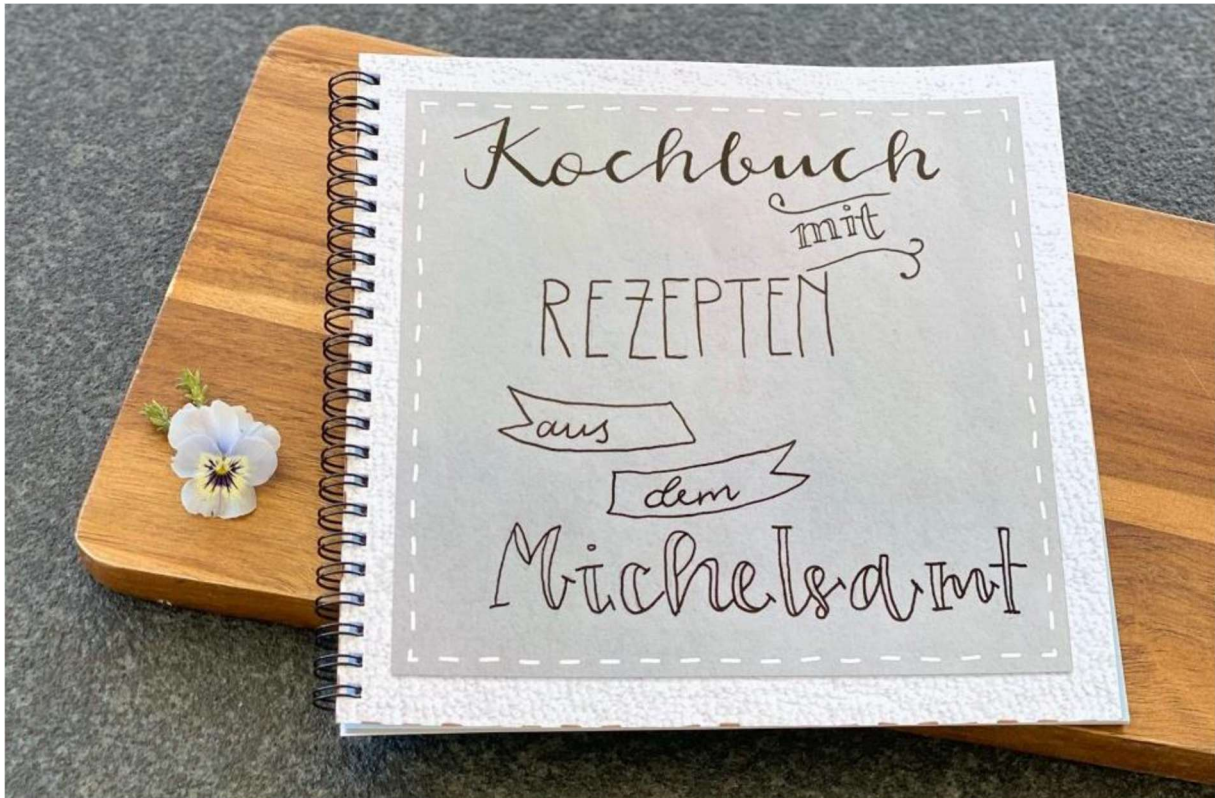 Kochbuch
mit
REZEPTEN
aus
dem
Michelsamt